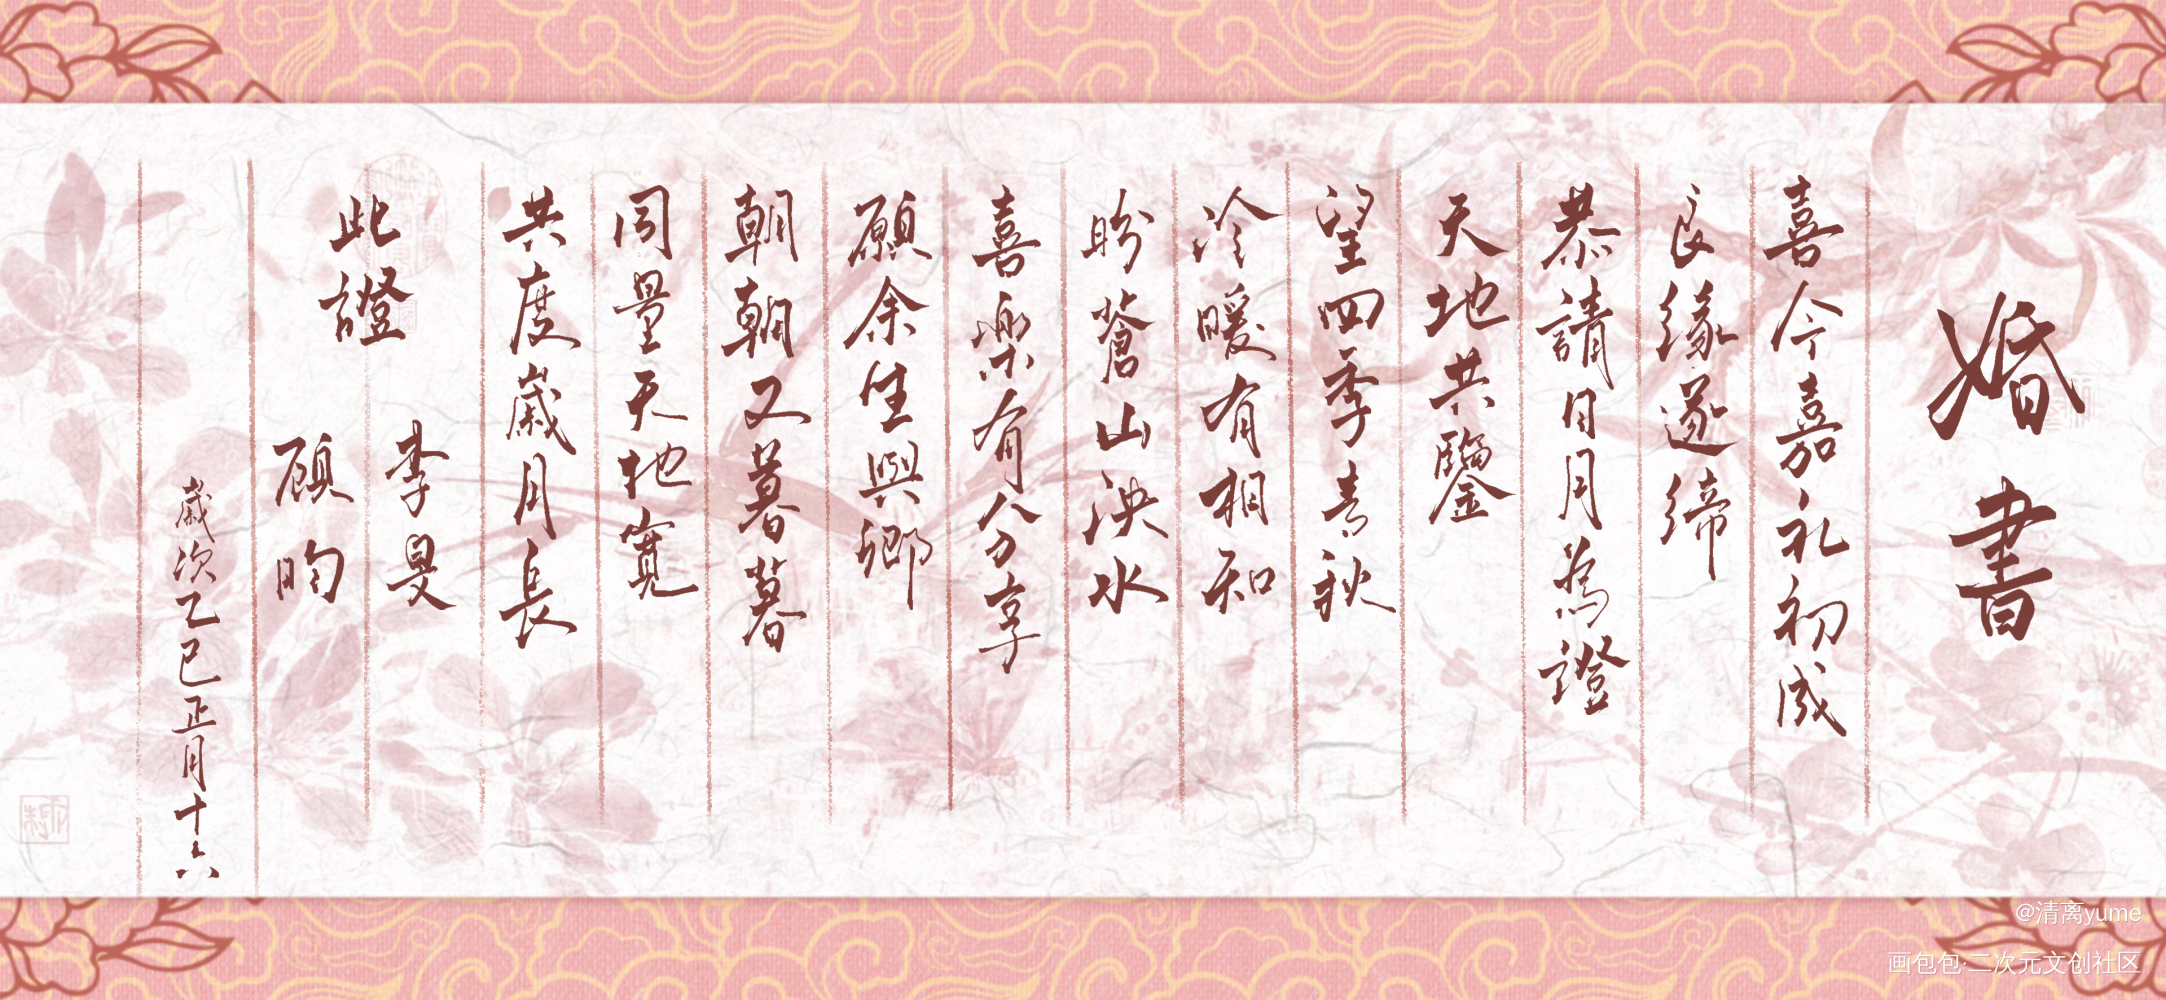 婚書
喜今嘉礼初成
良缘遂缔
恭請日月為證
天地共鑒
望四季青秋
冷暖有相知
盼蒼山泱水
喜樂有分享
願余生與卿
朝朝又暮暮
同量天地寬
共度歲月長
此證
李旻
顧昀
歲次乙巳正月十六
@清离yume
画包包·二次元文创社区